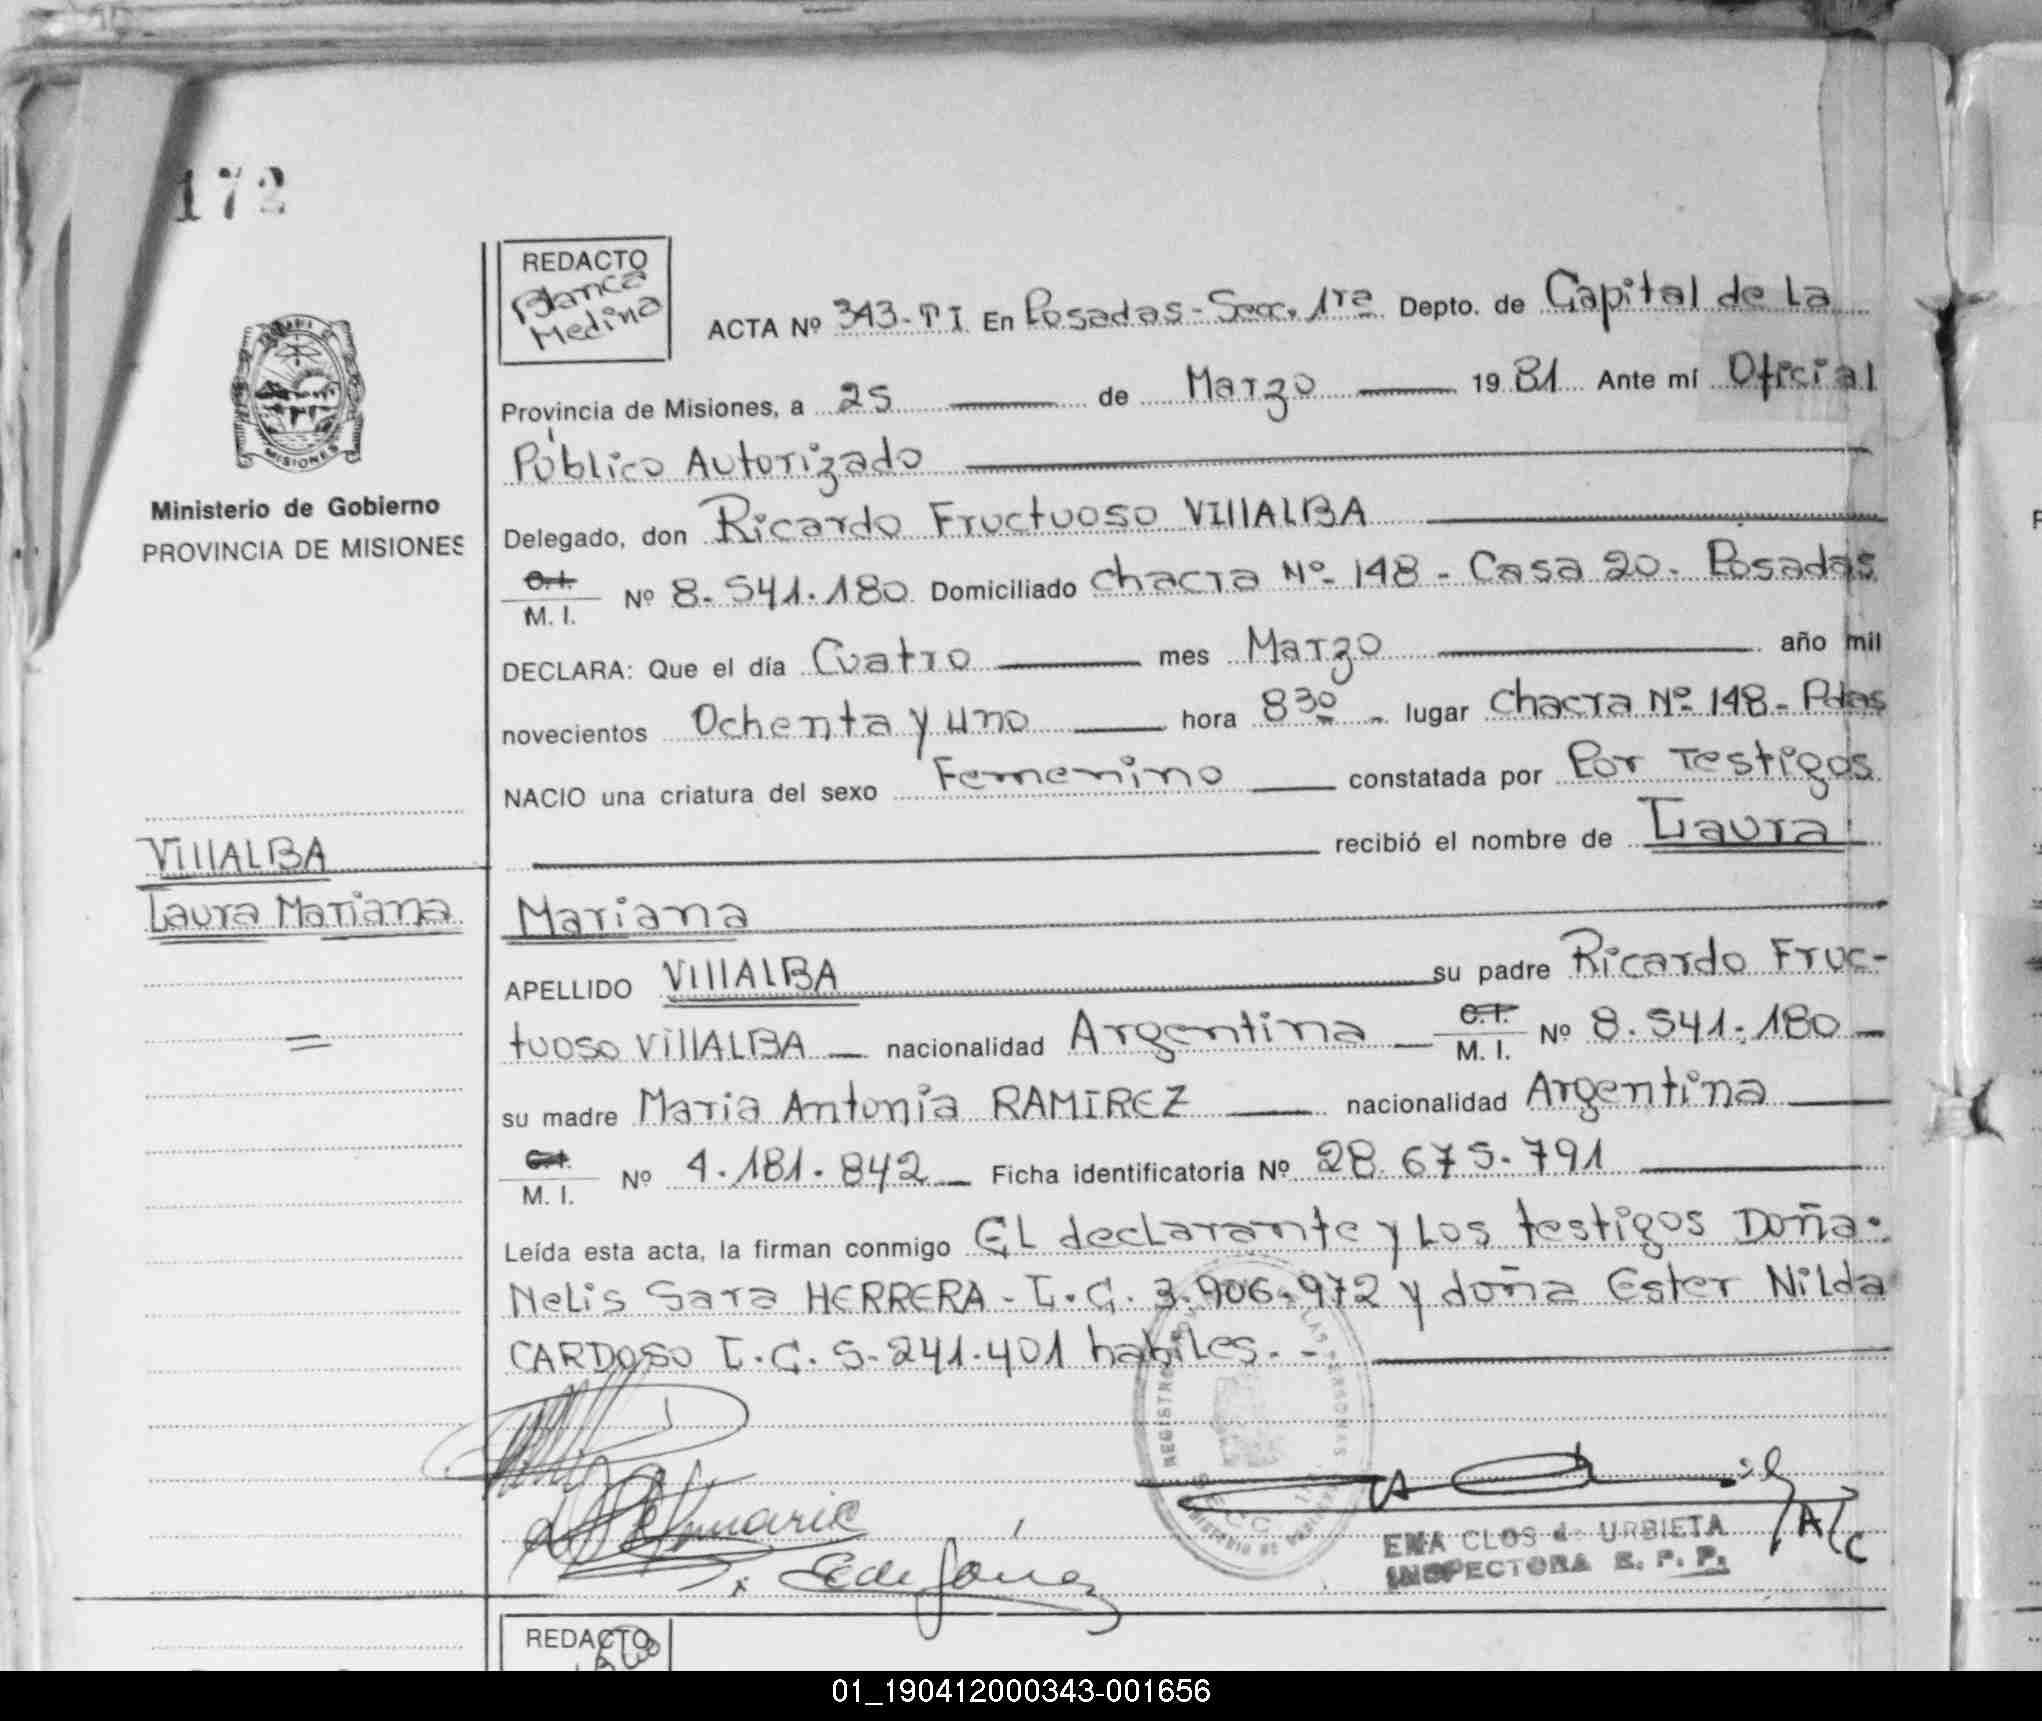 172
REDACTO
Blanca
Medina
ACTA Nº 343-TI En Posadas-Secc. 1ra Depto. de Capital de La
Provincia de Misiones, a 25 de Marzo 1981 Ante mí Oficial
Público Autorizado
Delegado, don Ricardo Fructuoso VIllALBA
C.I.
M. I. Nº 8.541.180 Domiciliado chacra Nº 148 - Casa 20 - Posadas
DECLARA: Que el día Cuatro mes Marzo año mil
novecientos Ochenta y uno hora 8 30 - lugar chacra Nº 148 - Pdas
NACIO una criatura del sexo Femenino constatada por Por Testigos
recibió el nombre de Laura
Mariana
APELLIDO VIllALBA su padre Ricardo Fruc-
tuoso VillALBA nacionalidad Argentina C.I.
M. I. Nº 8.541.180
su madre Maria Antonia RAMIREZ nacionalidad Argentina
C.I.
M. I. Nº 4.181.842 Ficha identificatoria Nº 28.675.791
Leída esta acta, la firman conmigo EL declarante y Los testigos Doña
Nelis Sara HERRERA - L.C. 3.906.972 y doña Ester Nilda
CARDOSO L.C. 5.241.401 habiles. -
MISIONES
Ministerio de Gobierno
PROVINCIA DE MISIONES
VIllALBA
Laura Mariana
REGISTRO LAS PERSONAS
A/c
EMA CLOS de URBIETA
INSPECTORA E. P. P.
REDACTO
01_190412000343-001656